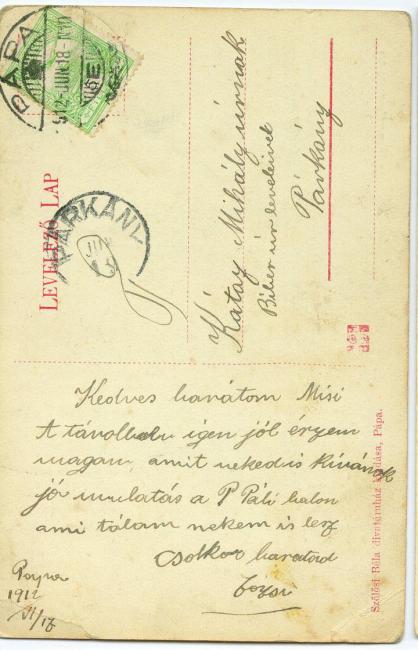 PÁPA
912-JUN.18-
LEVELEZŐ LAP
PÁRKÁNY
Kátay Mihály úrnak
Biber úr leveleivel
Párkány
Kedves barátom Misi
A távolban igen jól érzem
magam, amit neked is kívánok
jó mulatás a P Páli balon
ami tálam nekem is lesz
csolkor baratod
Józsi
Papa
1912
VI/17
Szőlősi Béla divatáruház kiadása, Pápa.